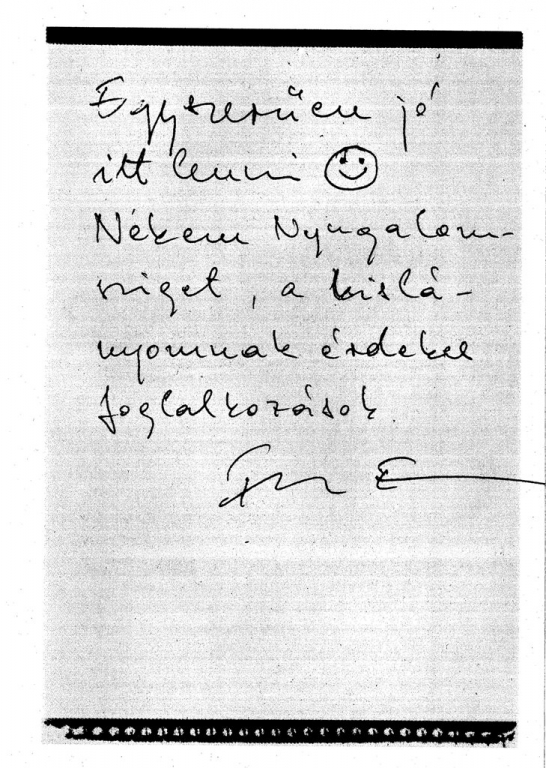 Egyszerűen jó
itt lenni ☺
Nékem Nyugalom-
sziget, a kislá-
nyomnak érdekes
foglalkozások